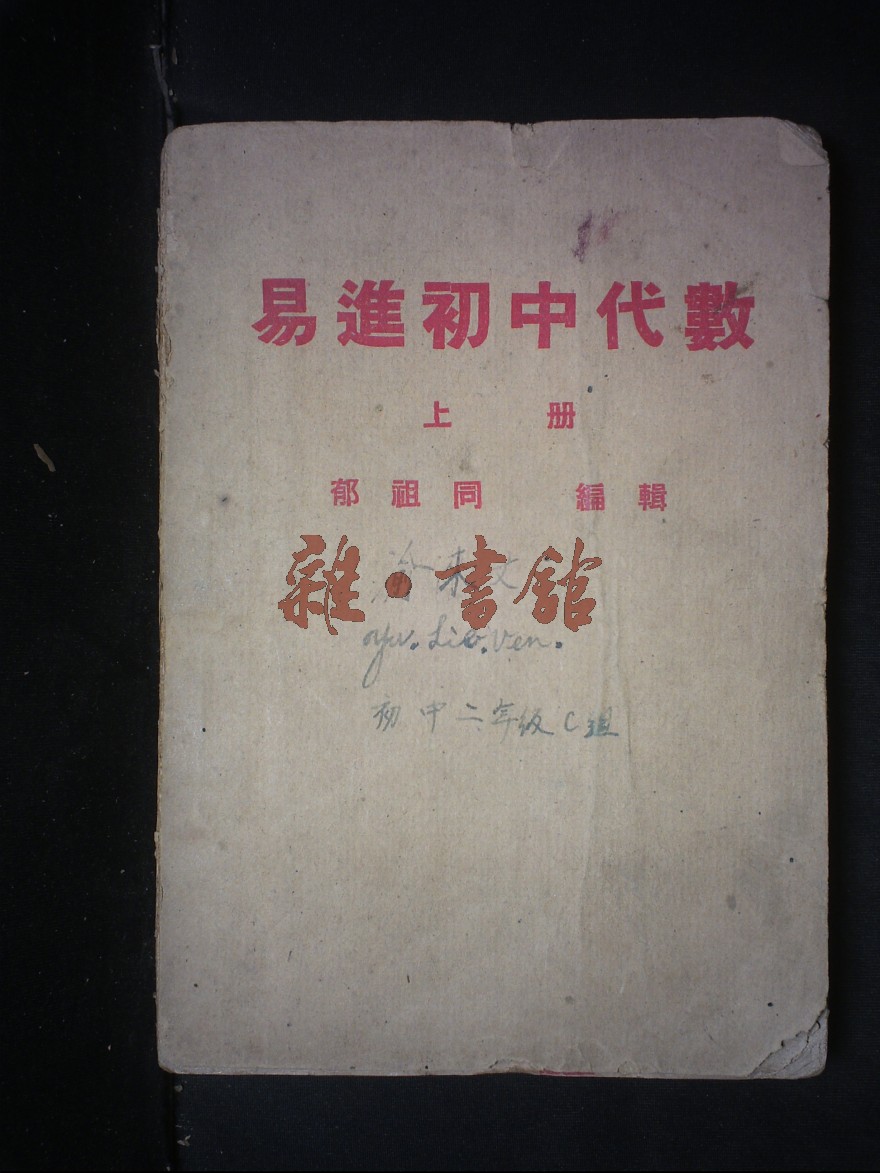 易進初中代數
上 册
郁祖同 編輯
雜·書館
Yu. Lio. Ven.
初中二年级C组